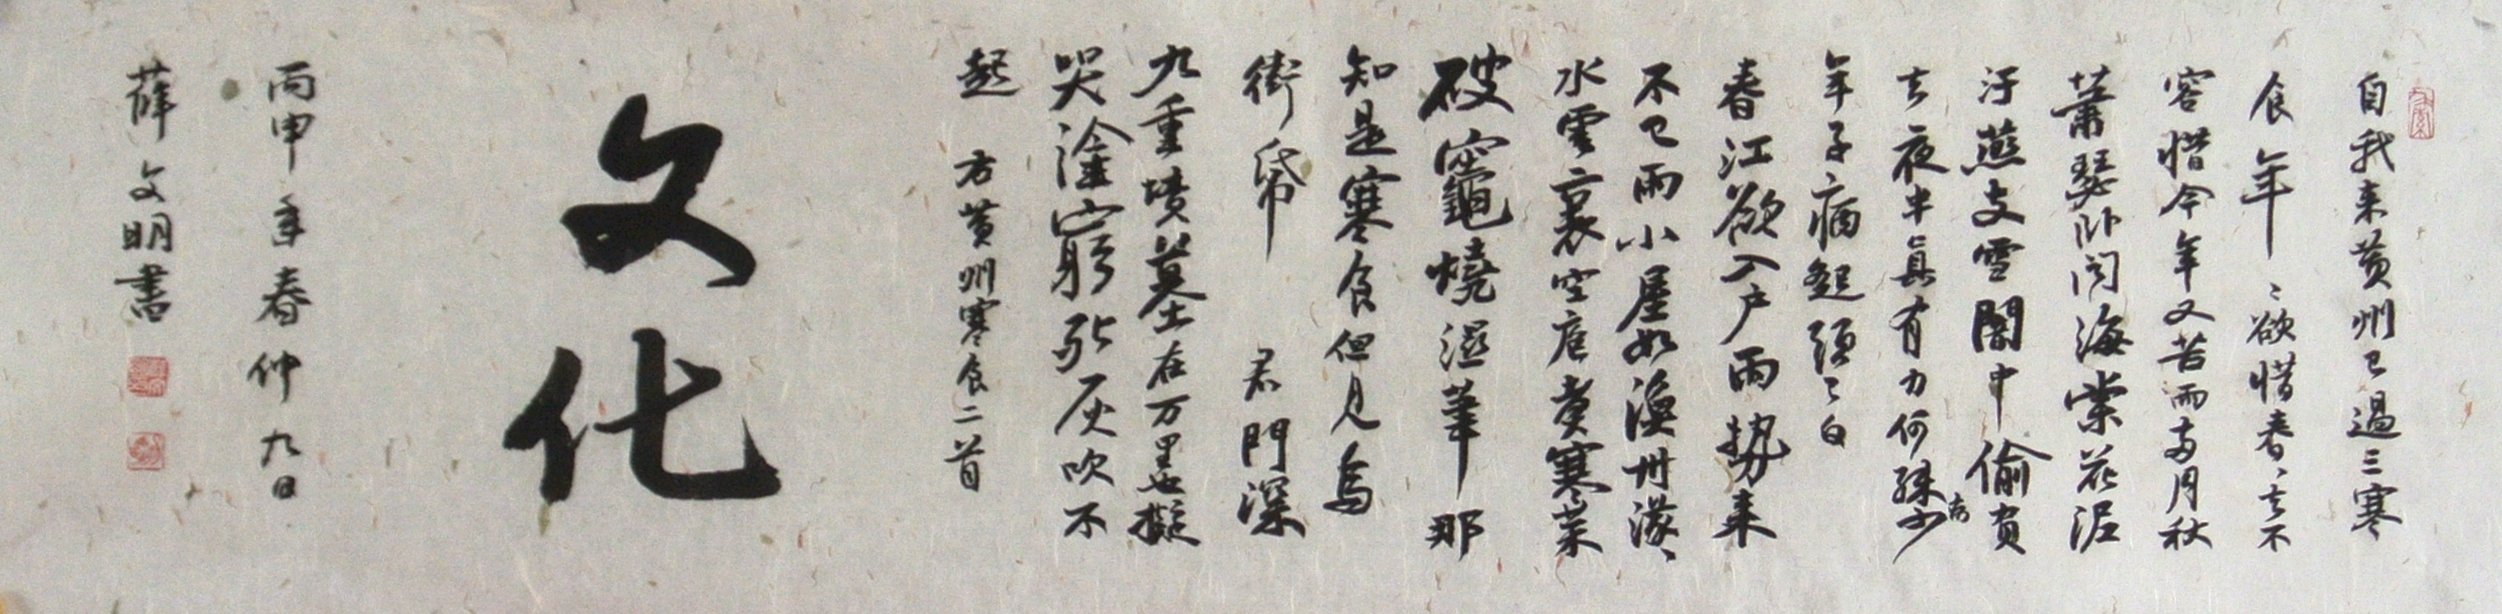 自我来黄州已過三寒
食年〻欲惜春〻去不
容惜今年又苦雨两月秋
蕭瑟卧闻海棠花泥
汙燕支雪闇中偷負
去夜半真有力何殊少
病
年子病起頭已白
春江欲入户雨势来
不已雨小屋如漁舟濛〻
水雲裏空庖煮寒菜
破竈燒湿葦那
知是寒食但見烏
銜帋君門深
九重墳墓在万里也擬
哭塗窮死灰吹不
起 右黄州寒食二首
文化
丙申年春仲九日
薛文明書